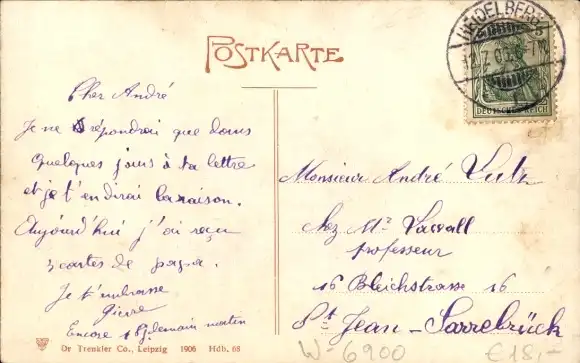 POSTKARTE
HEIDELBERG
DEUTSCHES REICH
5
Cher André
Je ne répondrai que dans
quelques jours à ta lettre
et je t'en dirai la raison.
Aujourd'hui j'ai reçu
3 cartes de papa.
Je t'embrasse
Pierre
Encore demain matin
Monsieur André Lutz
chez Mr Sawall
professeur
16 Bleichstrasse 16
St Jean - Sarrebrück
Dr Trenkler Co., Leipzig 1906 Hdb. 68
W-6900
€18,-